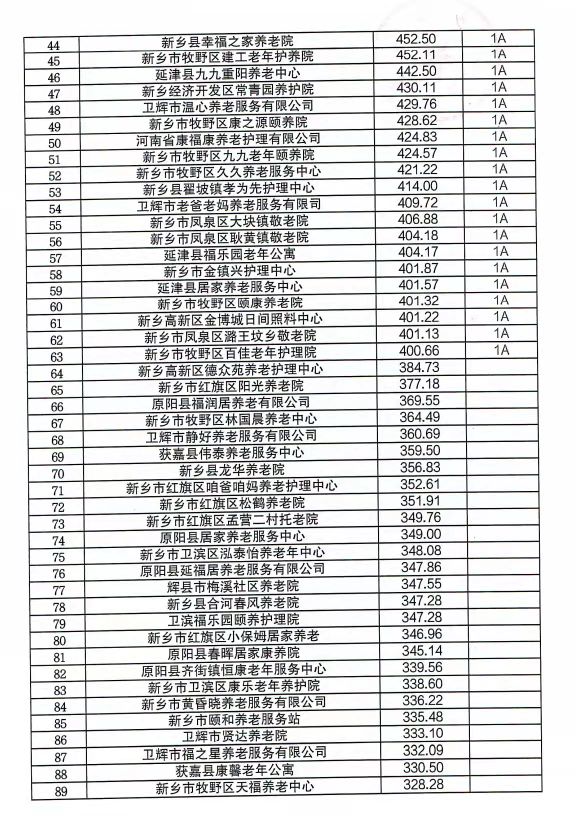 44 新乡县幸福之家养老院 452.50 1A
45 新乡市牧野区建工老年护养院 452.11 1A
46 延津县九九重阳养老中心 442.50 1A
47 新乡经济开发区常青园养护院 430.11 1A
48 卫辉市温心养老服务有限公司 429.76 1A
49 新乡市牧野区康之源颐养院 428.62 1A
50 河南省康福康养老护理有限公司 424.83 1A
51 新乡市牧野区九九老年颐养院 424.57 1A
52 新乡市牧野区久久养老服务中心 421.22 1A
53 新乡县翟坡镇孝为先护理中心 414.00 1A
54 卫辉市老爸老妈养老服务有限司 409.72 1A
55 新乡市凤泉区大块镇敬老院 406.88 1A
56 新乡市凤泉区耿黄镇敬老院 404.18 1A
57 延津县福乐园老年公寓 404.17 1A
58 新乡市金镇兴护理中心 401.87 1A
59 延津县居家养老服务中心 401.57 1A
60 新乡市牧野区颐康养老院 401.32 1A
61 新乡高新区金博城日间照料中心 401.22 1A
62 新乡市凤泉区潞王坟乡敬老院 401.13 1A
63 新乡市牧野区百佳老年护理院 400.66 1A
64 新乡高新区德众苑养老护理中心 384.73
65 新乡市红旗区阳光养老院 377.18
66 原阳县福润居养老有限公司 369.55
67 新乡市牧野区林国晨养老中心 364.49
68 卫辉市静好养老服务有限公司 360.69
69 获嘉县伟泰养老服务中心 359.50
70 新乡县龙华养老院 356.83
71 新乡市红旗区咱爸咱妈养老护理中心 352.61
72 新乡市红旗区松鹤养老院 351.91
73 新乡市红旗区孟营二村托老院 349.76
74 原阳县居家养老服务中心 349.00
75 新乡市卫滨区泓泰怡养老年中心 348.08
76 原阳县延福居养老服务有限公司 347.86
77 辉县市梅溪社区养老院 347.55
78 新乡县合河春风养老院 347.28
79 卫滨福乐园颐养护理院 347.28
80 新乡市红旗区小保姆居家养老 346.96
81 原阳县春晖居家康养院 345.14
82 原阳县齐街镇恒康老年服务中心 339.56
83 新乡市卫滨区康乐老年养护院 338.60
84 新乡市黄昏晓养老服务有限公司 336.22
85 新乡市颐和养老服务站 335.48
86 卫辉市贤达养老院 333.10
87 卫辉市福之星养老服务有限公司 332.09
88 获嘉县康馨老年公寓 330.50
89 新乡市牧野区天福养老中心 328.28